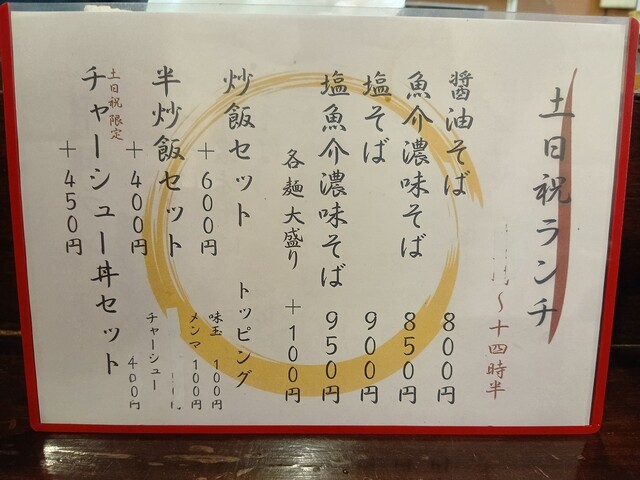 土日祝ランチ
〜十四時半
醤油そば 800円
魚介濃味そば 850円
塩そば 900円
塩魚介濃味そば 950円
各麺大盛り +100円
炒飯セット +600円
半炒飯セット +400円
土日祝限定
チャーシュー丼セット +450円
トッピング
味玉 100円
メンマ 100円
チャーシュー 400円